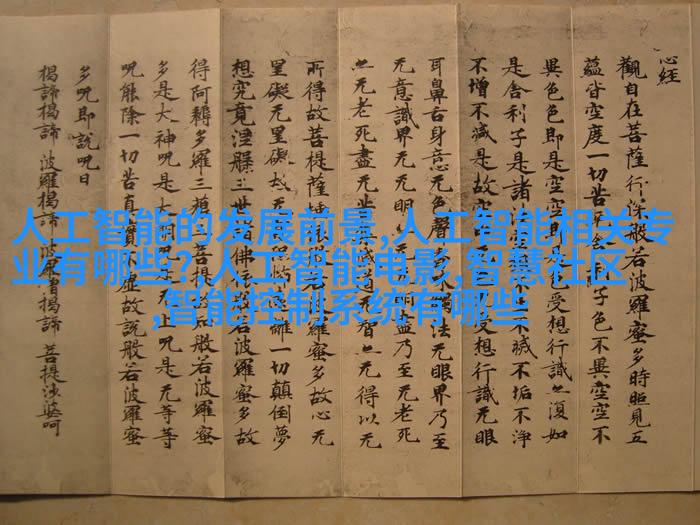 人工智能的发展前景,人工智能相关专
业有哪些?人工智能电影,智慧社区
,智能控制系统有哪些
心經
觀自在菩薩行深般若波羅蜜多時照見五
蘊皆空度一切苦厄舍利子色不異空空不
異色色即是空空即是色受想行識亦復如
是舍利子是諸法空相不生不滅不垢不淨
不增不減是故空中无色无受想行識无眼
耳鼻舌身意无色聲香味觸法无眼界乃至
无意識界无无明亦无无明盡乃至无老死
亦无老死盡无苦集滅道无智亦无得以无
所得故菩提薩埵依般若波羅蜜多故心无
罣礙无罣礙故无有恐怖遠離一切顛倒夢
想究竟涅槃三世諸佛依般若波羅蜜多故
得阿耨多羅三藐三菩提故知般若波羅蜜
多是大神呪是大明呪是无上呪是无等等
呪能除一切苦真實不虛故說般若波羅蜜
多呪即說呪曰
揭諦揭諦 波羅揭諦 波羅僧揭諦 菩提娑婆呵